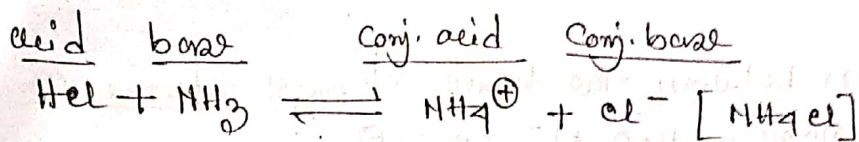 acid base Conj. acid Conj. base
HCl + NH3 ⇌ NH4⊕ + Cl⁻ [NH4Cl]